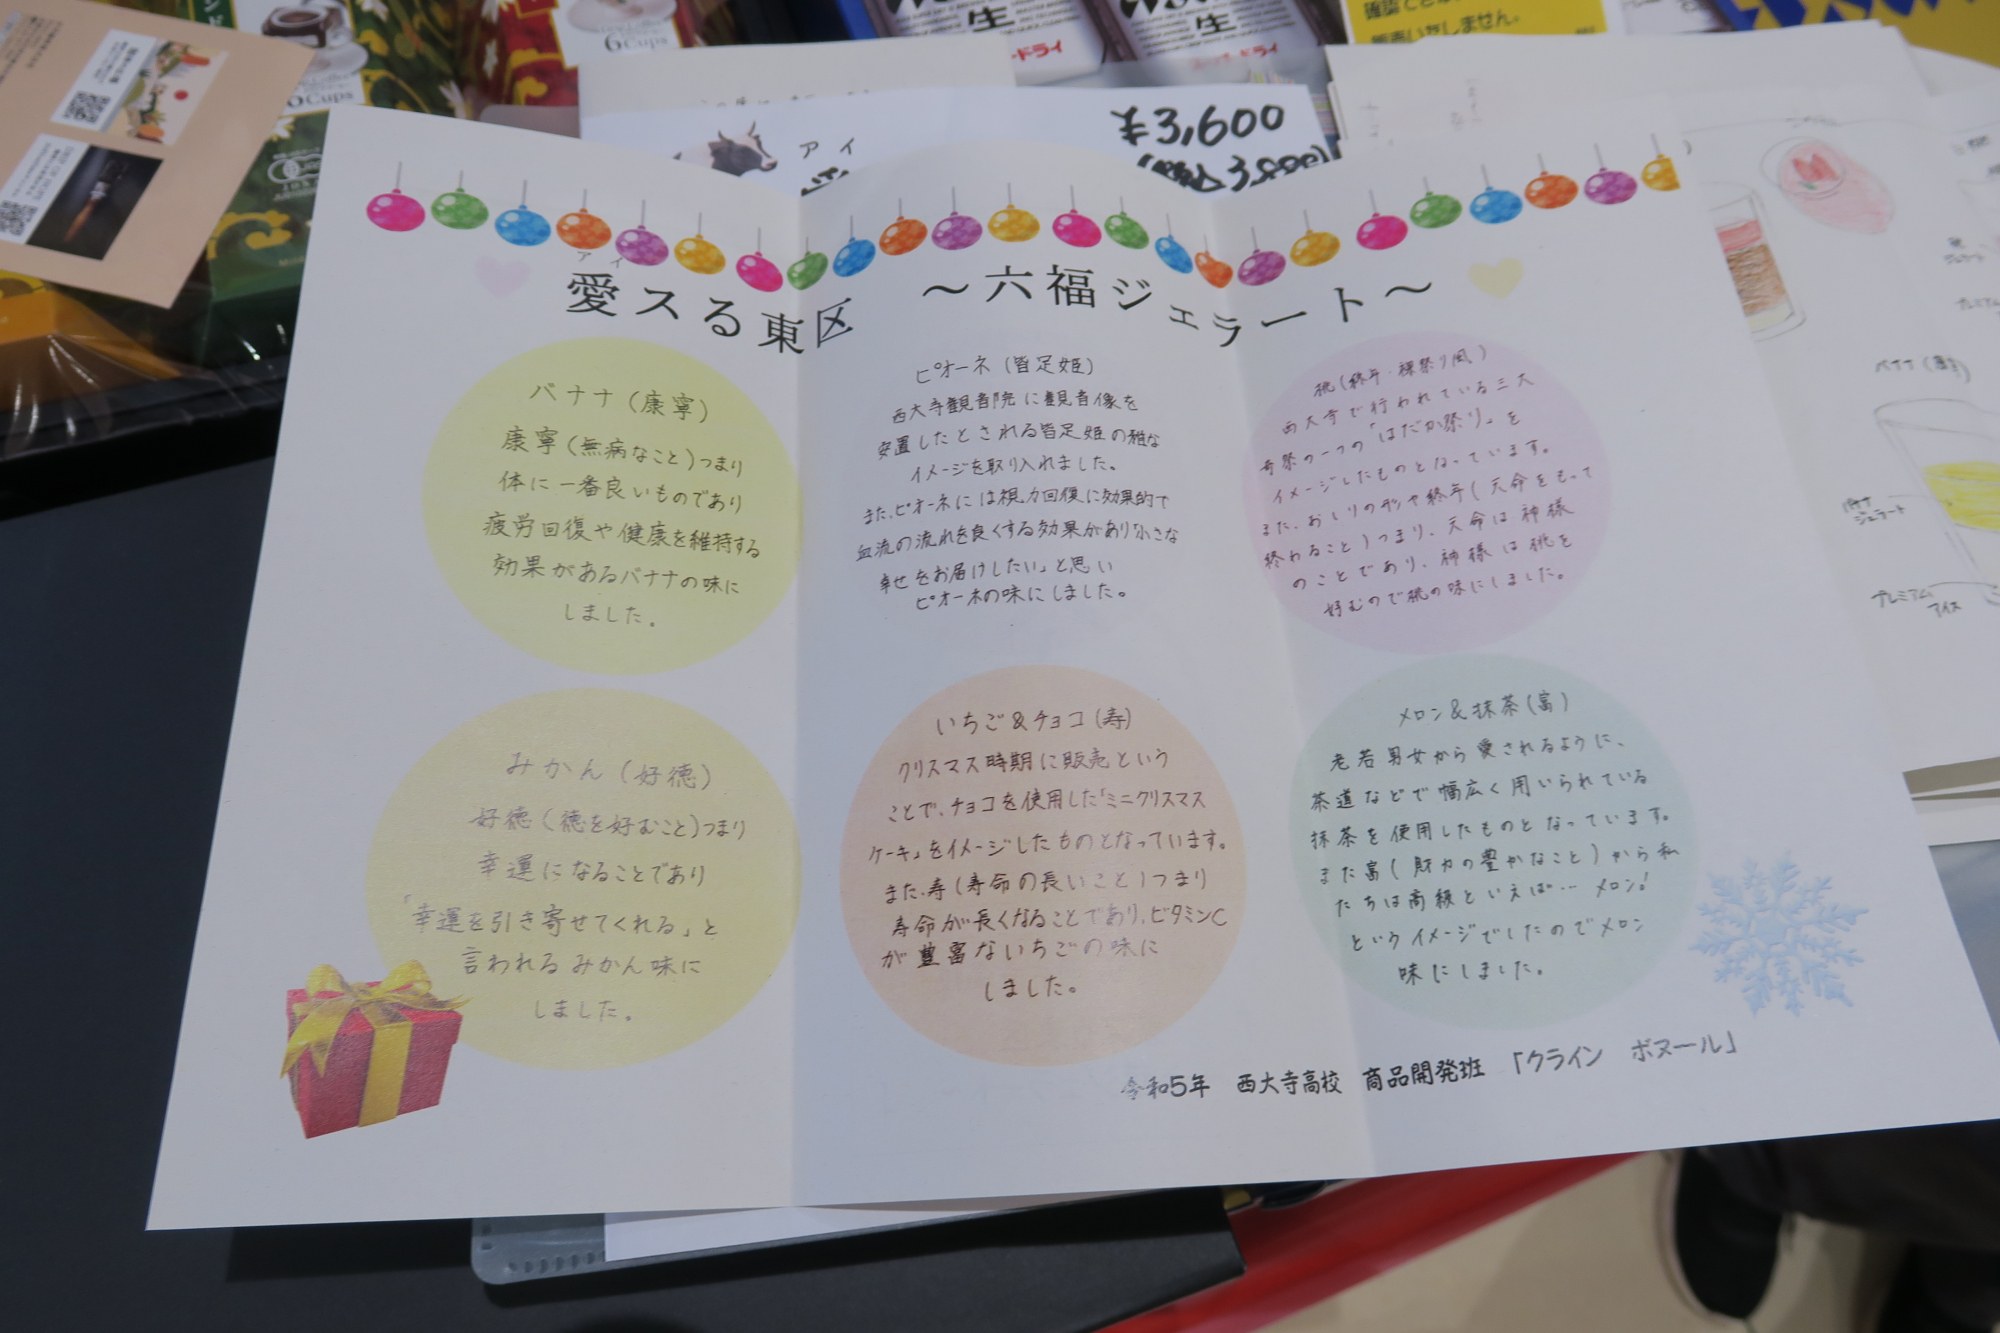 6Cups
生
ドライ
生
スーパードライ
確認できな
販売いたしません。
¥3,600
アイ
アイ
愛スる東区 ～六福ジェラート～
バナナ(康寧)
康寧(無病なこと)つまり
体に一番良いものであり
疲労回復や健康を維持する
効果があるバナナの味に
しました。
ピオーネ(皆足姫)
西大寺観音院に観音像を
安置したとされる皆足姫の雅な
イメージを取り入れました。
また、ピオーネには視力回復に効果的で
血流の流れを良くする効果があり「小さな
幸せをお届けしたい」と思い
ピオーネの味にしました。
桃(終年・裸祭り風)
西大寺で行われている三大
奇祭の一つの「はだか祭り」を
イメージしたものとなっています。
また、おしりの形や終年(天命をもって
終わること)つまり、天命は神様
のことであり、神様は桃を
好むので桃の味にしました。
みかん(好徳)
好徳(徳を好むこと)つまり
幸運になることであり
「幸運を引き寄せてくれる」と
言われるみかん味に
しました。
いちご&チョコ(寿)
クリスマス時期に販売という
ことで、チョコを使用した「ミニクリスマス
ケーキ」をイメージしたものとなっています。
また、寿(寿命の長いこと)つまり
寿命が長くなることであり、ビタミンC
が豊富ないちごの味に
しました。
メロン&抹茶(富)
老若男女から愛されるように、
茶道などで幅広く用いられている
抹茶を使用したものとなっています。
また富(財力の豊かなこと)から私
たちは高級といえば… メロン!
というイメージでしたのでメロン
味にしました。
令和5年 西大寺高校 商品開発班 「クライン ボヌール」
バナナ
ジェラート
プレミアム
アイス